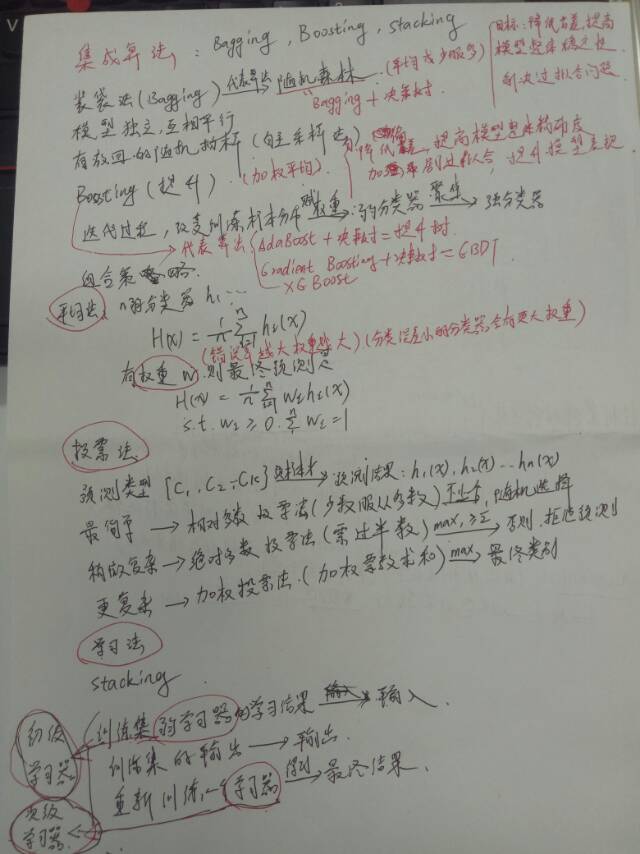 集成算法：Bagging，Boosting，stacking
目标：降低方差，提高
模型整体稳定性
解决过拟合问题
装袋法(Bagging) 代表算法→随机森林.(平均或少服多)
Bagging + 决策树.
模型独立，互相平行
有放回的随机抽样(自主采样法)
提高模型整体精确度
Boosting (提升) (加权平均).
迭代过程，改变训练样本分布 权重→弱分类器 聚集→强分类器
代表算法 AdaBoost + 决策树 = 提升树.
Gradient Boosting + 决策树 = GBDT
XGBoost
组合策略.
平均法：n弱分类器 h₁…
H(x) = 1/n Σ hᵢ(x)
(错误率越大权重越大)(分类误差小的分类器，会有更大权重)
有权重 w.则最终预测是
H(x) = 1/n Σ wᵢhᵢ(x)
s.t. wᵢ ≥ 0. Σ wᵢ = 1
投票法
预测类型 {C₁，C₂…Cₖ} →预测结果：h₁(x)，h₂(x)…hn(x)
最简单→相对多数投票法(少数服从多数) →随机选择
稍微复杂→绝对多数投票法(需过半数) →否则，拒绝预测
更复杂→加权投票法.(加权票数求和) max→最终类别
学习法
stacking
初级
学习器
训练集弱学习器的学习结果→输入.
训练集的输出→输出.
重新训练一个学习器 得到→最终结果.
次级
学习器